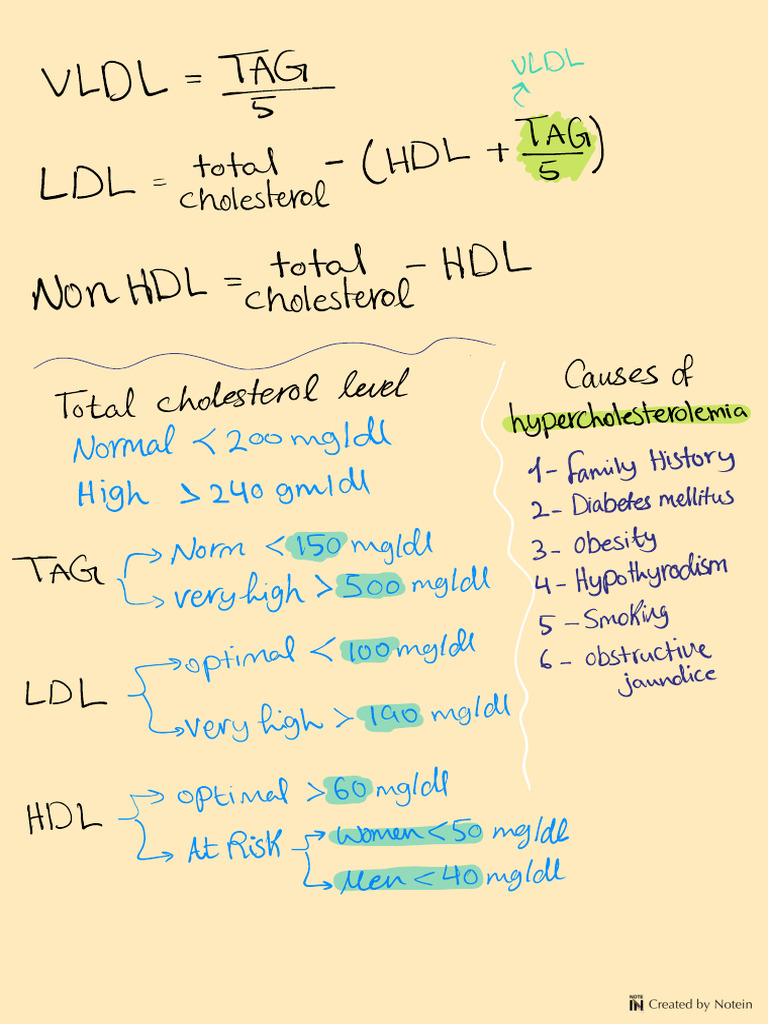 VLDL
VLDL = TAG/5
LDL = total cholesterol - (HDL + TAG/5)
Non HDL = total cholesterol - HDL
Total cholesterol level
Normal < 200 mg/dl
High > 240 gm/dl
TAG
Norm < 150 mg/dl
very high > 500 mg/dl
LDL
optimal < 100 mg/dl
very high > 190 mg/dl
HDL
optimal > 60 mg/dl
At Risk
Women < 50 mg/dl
Men < 40 mg/dl
Causes of
hypercholesterolemia
1- family History
2- Diabetes mellitus
3- obesity
4- Hypothyrodism
5- Smoking
6- obstructive
jaundice
NOTE IN Created by Notein